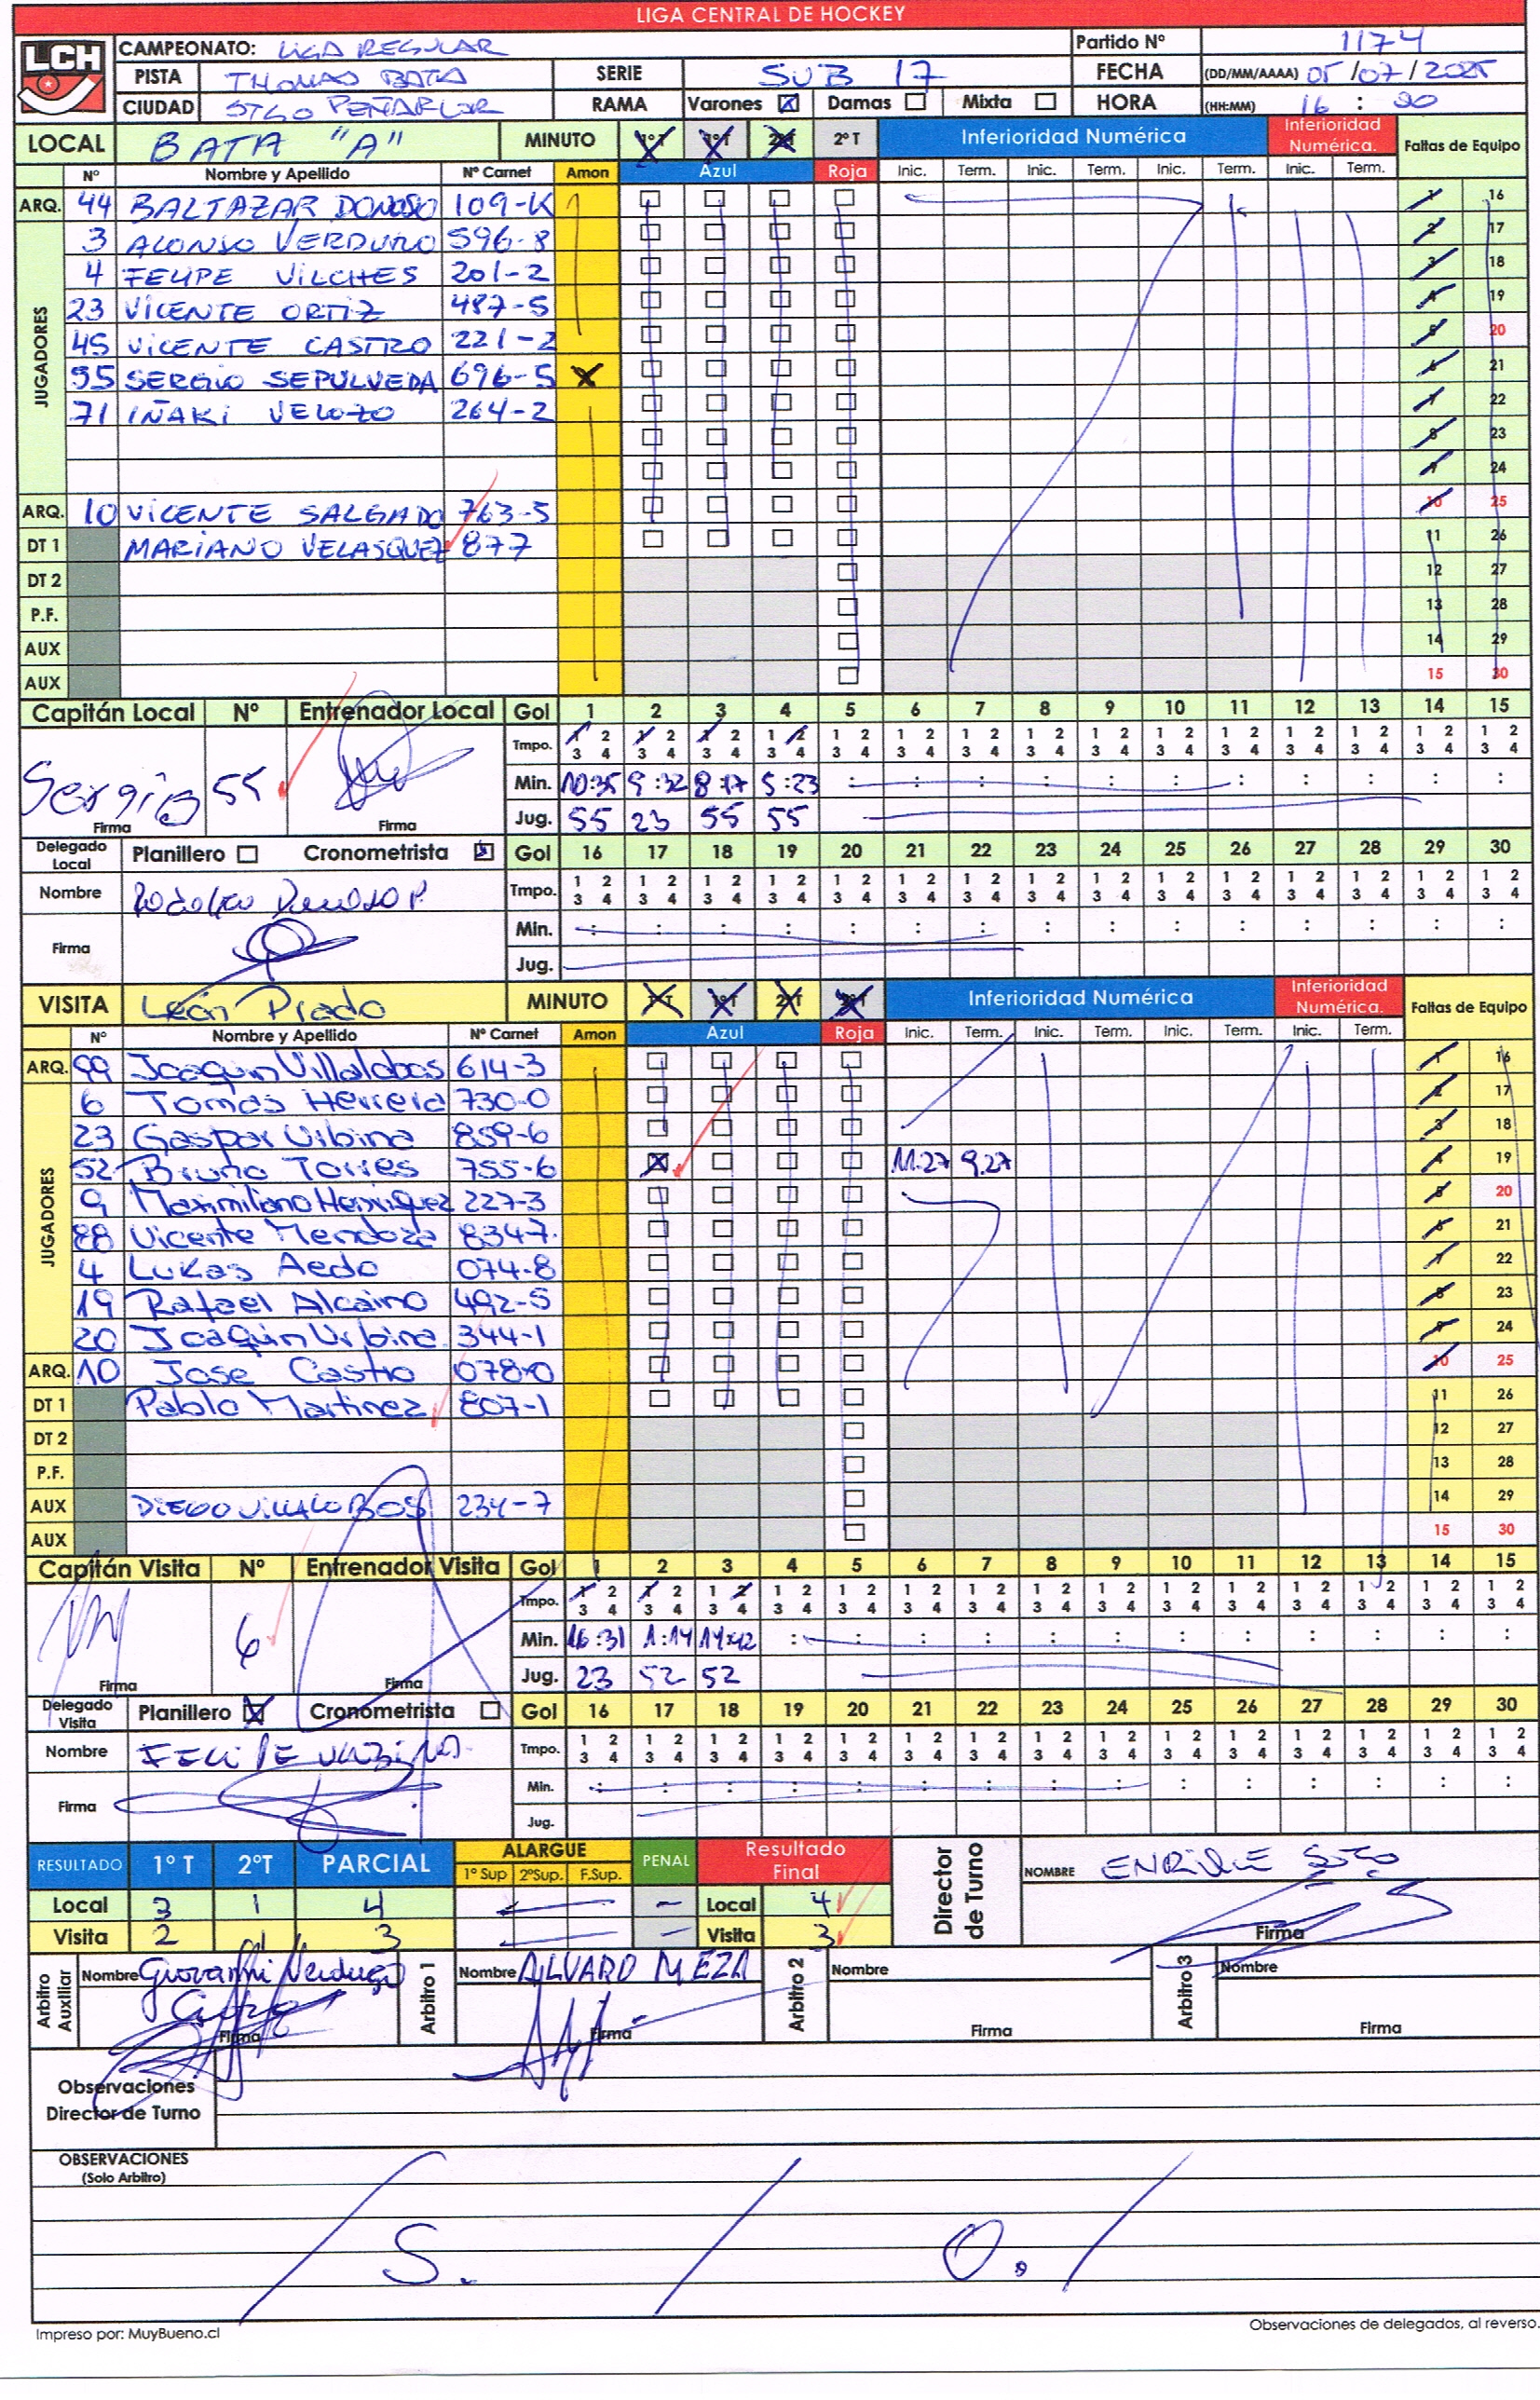 LIGA CENTRAL DE HOCKEY
LCH
CAMPEONATO: LIGA REGULAR Partido Nº 1174
PISTA THOMAS BATA SERIE SUB 17 FECHA (DD/MM/AAAA) 05/07/2025
CIUDAD STGO PEÑAFLOR RAMA Varones Damas Mixta HORA (HH:MM) 16 :
LOCAL BATA "A" MINUTO 1ºT 1ºT 2ºT 2ºT Inferioridad Numérica Inferioridad Numérica. Faltas de Equipo
Nº Nombre y Apellido Nº Carnet Amon Azul Roja Inic. Term. Inic. Term. Inic. Term. Inic. Term.
ARQ. 44 BALTAZAR DONOSO 109-K 1 16
JUGADORES
3 ALONSO VERDUGO 596-8 2 17
4 FELIPE VILCHES 201-2 3 18
23 VICENTE ORTIZ 487-5 4 19
45 VICENTE CASTRO 221-2 5 20
55 SERGIO SEPULVEDA 696-5 X 6 21
71 IÑAKI VELOZO 264-2 7 22
8 23
9 24
ARQ. 10 VICENTE SALGADO 763-5 10 25
DT 1 MARIANO VELASQUEZ 877 11 26
DT 2 12 27
P.F. 13 28
AUX 14 29
AUX 15 30
Capitán Local Nº Entrenador Local Gol 1 2 3 4 5 6 7 8 9 10 11 12 13 14 15
Tmpo. 1 2 3 4 1 2 3 4 1 2 3 4 1 2 3 4 1 2 3 4 1 2 3 4 1 2 3 4 1 2 3 4 1 2 3 4 1 2 3 4 1 2 3 4 1 2 3 4 1 2 3 4 1 2 3 4 1 2 3 4
Sergio 55 Min. 10:35 9:32 8:17 5:23 : : : : : : : : : : :
Firma Firma Jug. 55 23 55 55
Delegado Local Planillero Cronometrista Gol 16 17 18 19 20 21 22 23 24 25 26 27 28 29 30
Nombre Tmpo. 1 2 3 4 1 2 3 4 1 2 3 4 1 2 3 4 1 2 3 4 1 2 3 4 1 2 3 4 1 2 3 4 1 2 3 4 1 2 3 4 1 2 3 4 1 2 3 4 1 2 3 4 1 2 3 4 1 2 3 4
Firma Min. : : : : : : : : : : : : : : :
Jug.
VISITA León Prado MINUTO 1ºT 1ºT 2ºT 2ºT Inferioridad Numérica Inferioridad Numérica. Faltas de Equipo
Nº Nombre y Apellido Nº Carnet Amon Azul Roja Inic. Term. Inic. Term. Inic. Term. Inic. Term.
ARQ. 99 Joaquin Villalobos 614-3 1 16
JUGADORES
6 Tomás Herrera 730-0 2 17
23 Gaspar Urbina 859-6 3 18
52 Bruno Torres 755-6 X 11:27 9:27 4 19
9 Maximiliano Henriquez 227-3 5 20
88 Vicente Mendoza 834-7 6 21
4 Lukas Aedo 074-8 7 22
19 Rafael Alcaino 492-5 8 23
20 Joaquin Urbina 344-1 9 24
ARQ. 10 Jose Castro 078-0 10 25
DT 1 Pablo Martinez 807-1 11 26
DT 2 12 27
P.F. 13 28
AUX DIEGO VILLALOBOS 234-7 14 29
AUX 15 30
Capitán Visita Nº Entrenador Visita Gol 1 2 3 4 5 6 7 8 9 10 11 12 13 14 15
Tmpo. 1 2 3 4 1 2 3 4 1 2 3 4 1 2 3 4 1 2 3 4 1 2 3 4 1 2 3 4 1 2 3 4 1 2 3 4 1 2 3 4 1 2 3 4 1 2 3 4 1 2 3 4 1 2 3 4 1 2 3 4
6 Min. 16:31 1:14 14:42 : : : : : : : : : : : :
Firma Firma Jug. 23 52 52
Delegado Visita Planillero Cronometrista Gol 16 17 18 19 20 21 22 23 24 25 26 27 28 29 30
Nombre FELIPE URBINA Tmpo. 1 2 3 4 1 2 3 4 1 2 3 4 1 2 3 4 1 2 3 4 1 2 3 4 1 2 3 4 1 2 3 4 1 2 3 4 1 2 3 4 1 2 3 4 1 2 3 4 1 2 3 4 1 2 3 4 1 2 3 4
Firma Min. : : : : : : : : : : : : : : :
Jug.
RESULTADO 1º T 2ºT PARCIAL ALARGUE 1º Sup 2ºSup. F.Sup. PENAL Resultado Final Director de Turno NOMBRE ENRIQUE SOTO
Local 3 1 4 Local 4
Visita 2 3 Visita 3 Firma
Arbitro Auxiliar Nombre Giovanni Verdugo Arbitro 1 Nombre ALVARO MEZA Arbitro 2 Nombre Arbitro 3 Nombre
Firma Firma Firma Firma
Observaciones
Director de Turno
OBSERVACIONES
(Solo Arbitro)
S. O.
Impreso por: MuyBueno.cl Observaciones de delegados, al reverso.